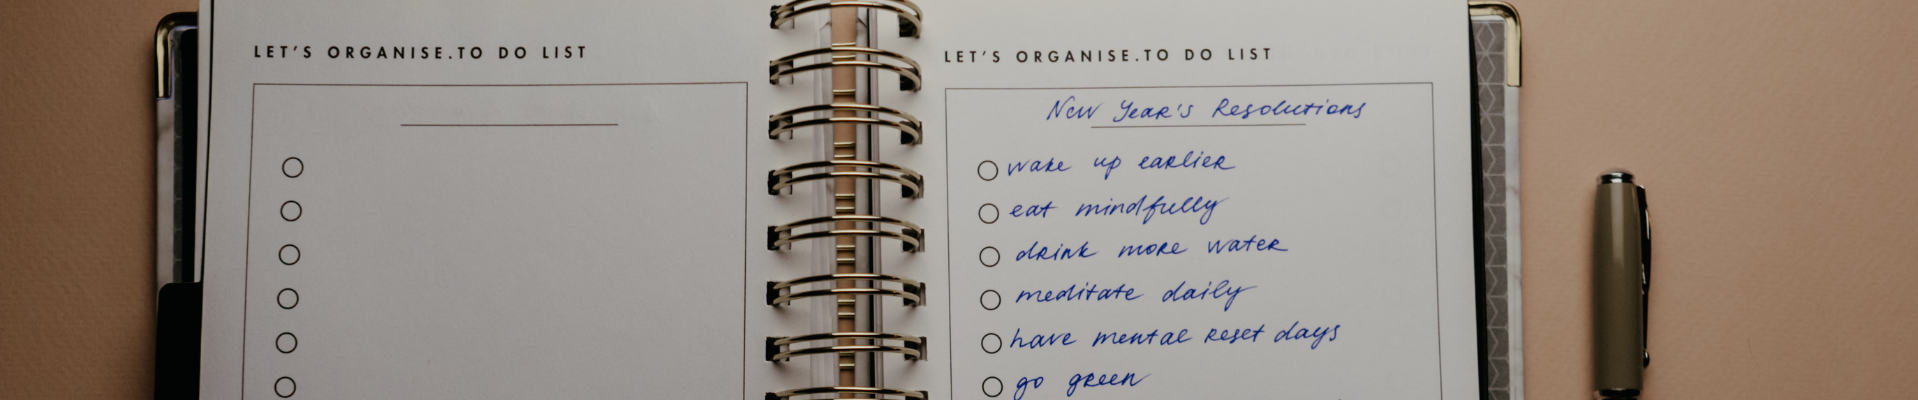 LET'S ORGANISE.TO DO LIST
LET'S ORGANISE.TO DO LIST
New Year's Resolutions
wake up earlier
eat mindfully
drink more water
meditate daily
have mental reset days
go green